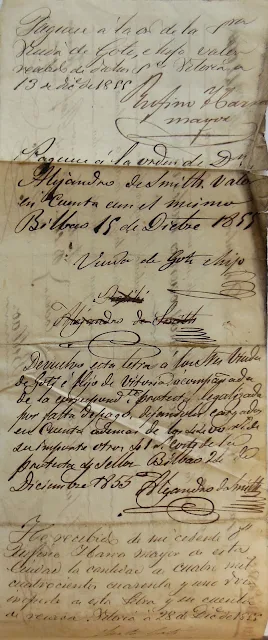 Paguese á la o. de la Sra
Viuda de Goti, e hijo valor
recibido de dichos Sres Vitoria a
13 de Dic. de 1855
Rufino Ibarra
mayor
Paguese á la orden de Dn
Alejandro de Smith. Valor
en Cuenta con el mismo
Bilbao 15 de Dicbre 1855
Viuda de Goti e hijo
Alejandro de Smith
Devuelvo esta letra á los Sres Viuda
de Goti é Hijo de Vitoria acompañada
de la protesta legalizada
por falta de pago, dejandoles cargados
en Cuenta ademas de los
su importe otros del costo de la
protesta y sellos Bilbao
Diciembre 1855 Alejandro de Smith
He recibido de mi cedente Dn
Rufino Ibarra mayor de esta
Ciudad la cantidad de cuatro mil
cuatrocientos cuarenta y nueve
importe de esta letra y su cuenta
de resaca Vitoria á 28 de Dic. de 1855